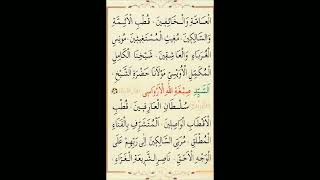 الْعَاقِبَةِ وَالْخَائِفِينَ ۞ قُطْبِ الْاَئِمَّةِ
وَالسَّالِكِينَ ۞ مُغِيثِ الْمُسْتَغِيثِينَ ۞ مُونِسِ
الْغُرَبَاءِ وَالْعَاشِقِينَ ۞ شَيْخِنَا الْكَامِلِ
الْمُكَمِّلِ الْأُوَيْسِيِّ مَوْلَانَا حَضْرَةِ الشَّيْخِ
السَّيِّدِ صِبْغَةِ اللهِ الْاَرْوَاسِي
سُلْطَانِ الْعَارِفِينَ ۞ قُطْبِ
الْاَقْطَابِ الْوَاصِلِينَ ۞ الْمُتَشَرِّفِ بِالْفَنَاءِ
الْمُطْلَقِ ۞ مُرَبِّي السَّالِكِينَ اِلٰى رَبِّهِمْ عَلَى
الْوَجْهِ الْاَحَقِّ ۞ نَاصِرِ الشَّرِيعَةِ الْغَرَّاءِ ۞